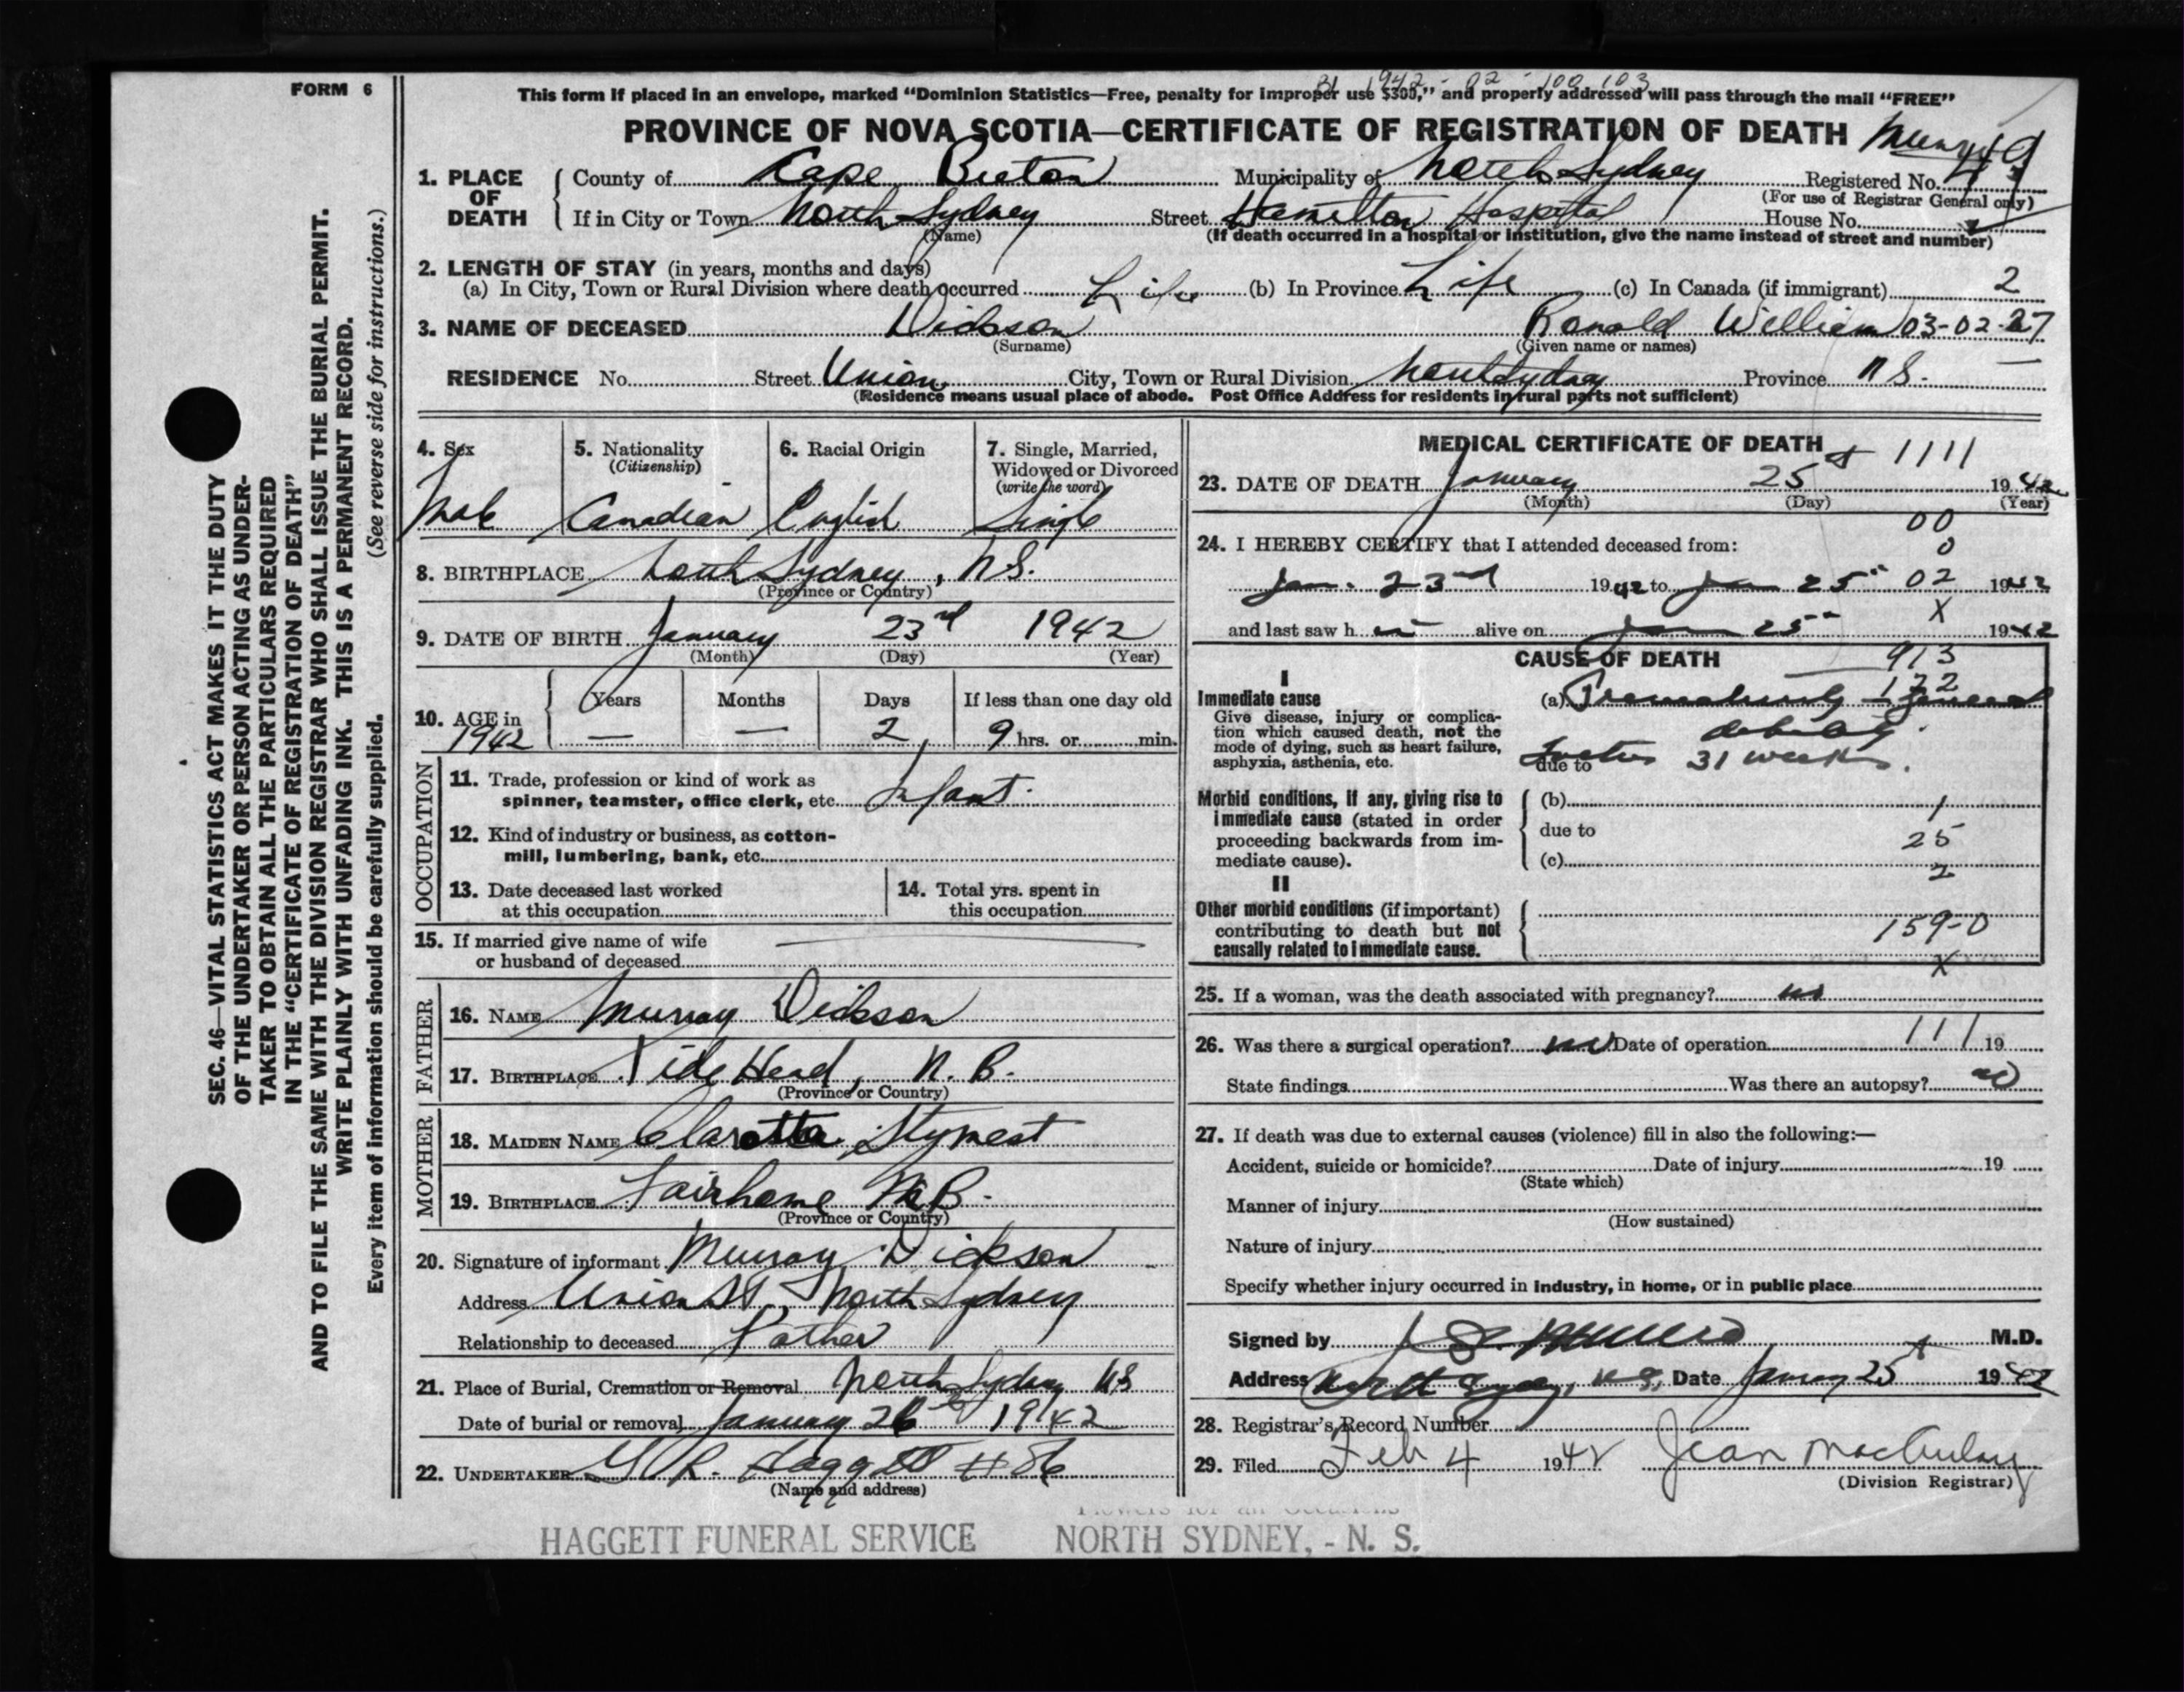 FORM 6
This form if placed in an envelope, marked “Dominion Statistics—Free, penalty for improper use $300,” and properly addressed will pass through the mail “FREE”
PROVINCE OF NOVA SCOTIA—CERTIFICATE OF REGISTRATION OF DEATH
1. PLACE OF DEATH
County of Cape Breton Municipality of North Sydney Registered No. 49
(For use of Registrar General only)
If in City or Town North Sydney Street Hamilton Hospital House No.
(Name) (If death occurred in a hospital or institution, give the name instead of street and number)
2. LENGTH OF STAY (in years, months and days)
(a) In City, Town or Rural Division where death occurred Life (b) In Province Life (c) In Canada (if immigrant) 2
3. NAME OF DECEASED Dickson Ronald William 03-02-27
(Surname) (Given name or names)
RESIDENCE No. Street Union City, Town or Rural Division North Sydney Province N S.
(Residence means usual place of abode. Post Office Address for residents in rural parts not sufficient)
4. Sex 5. Nationality (Citizenship) 6. Racial Origin 7. Single, Married, Widowed or Divorced (write the word)
Male Canadian English Single
8. BIRTHPLACE North Sydney, N.S.
(Province or Country)
9. DATE OF BIRTH January 23rd 1942
(Month) (Day) (Year)
10. AGE in 1942
Years Months Days If less than one day old
— — 2, 9 hrs. or min.
OCCUPATION
11. Trade, profession or kind of work as spinner, teamster, office clerk, etc. Infant
12. Kind of industry or business, as cotton-mill, lumbering, bank, etc.
13. Date deceased last worked at this occupation
14. Total yrs. spent in this occupation
15. If married give name of wife or husband of deceased
FATHER
16. NAME Murray Dickson
17. BIRTHPLACE Tide Head, N. B.
(Province or Country)
MOTHER
18. MAIDEN NAME Claretta Stymest
19. BIRTHPLACE Fairhome N B.
(Province or Country)
20. Signature of informant Murray Dickson
Address Union St, North Sydney
Relationship to deceased Father
21. Place of Burial, Cremation or Removal North Sydney NS
Date of burial or removal January 26th 1942
22. UNDERTAKER R. Haggett #86
(Name and address)
MEDICAL CERTIFICATE OF DEATH
1111
23. DATE OF DEATH January 25 1942
(Month) (Day) (Year)
00
0
24. I HEREBY CERTIFY that I attended deceased from:
Jan. 23rd 1942 to Jan 25th 02 1942
X
and last saw h im alive on Jan 25th 1942
CAUSE OF DEATH
913
I
Immediate cause
Give disease, injury or complication which caused death, not the mode of dying, such as heart failure, asphyxia, asthenia, etc.
(a) Prematurity & general debility.
due to Foetus 31 weeks.
Morbid conditions, if any, giving rise to immediate cause (stated in order proceeding backwards from immediate cause).
(b) 1
due to 25
(c) 2
II
Other morbid conditions (if important) contributing to death but not causally related to immediate cause.
159-0
X
25. If a woman, was the death associated with pregnancy? no
26. Was there a surgical operation? no Date of operation 111 19
State findings Was there an autopsy? no
27. If death was due to external causes (violence) fill in also the following:—
Accident, suicide or homicide? Date of injury 19
(State which)
Manner of injury
(How sustained)
Nature of injury
Specify whether injury occurred in industry, in home, or in public place
Signed by M.D.
Address North Sydney, N.S. Date January 25 1942
28. Registrar’s Record Number
29. Filed Feb 4 1942 Jean MacAulay
(Division Registrar)
HAGGETT FUNERAL SERVICE NORTH SYDNEY, - N. S.
SEC. 46—VITAL STATISTICS ACT MAKES IT THE DUTY
OF THE UNDERTAKER OR PERSON ACTING AS UNDER-
TAKER TO OBTAIN ALL THE PARTICULARS REQUIRED
IN THE “CERTIFICATE OF REGISTRATION OF DEATH”
AND TO FILE THE SAME WITH THE DIVISION REGISTRAR WHO SHALL ISSUE THE BURIAL PERMIT.
WRITE PLAINLY WITH UNFADING INK. THIS IS A PERMANENT RECORD.
Every item of information should be carefully supplied. (See reverse side for instructions.)